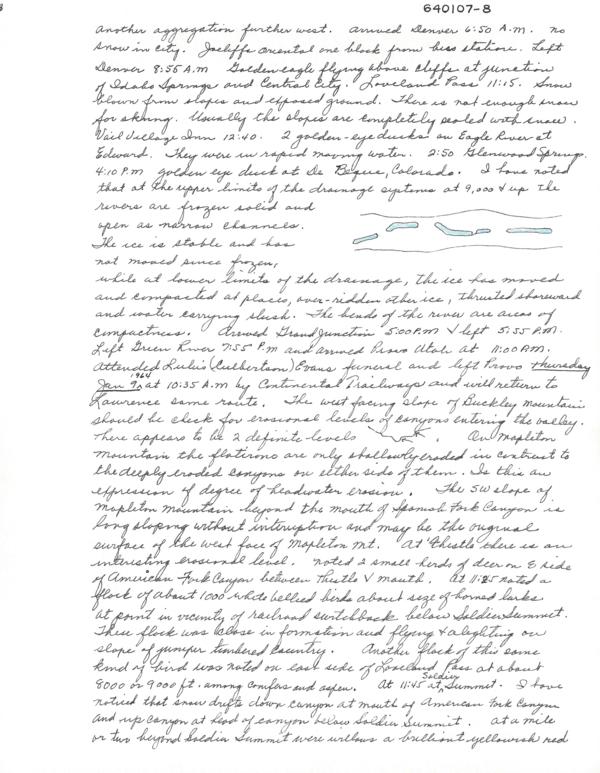 640107-8
another aggregation further west. arrived Denver 6:50 A.M. no
snow in city. Joeliffs Oriental one block from bus station. Left
Denver 8:55 A.M Golden eagle flying above cliffs at junction
of Idaho Springs and Central City. Loveland Pass 11:15. Snow
blown from slopes and exposed ground. There is not enough snow
for skiing. Usually the slopes are completely sealed with snow.
Vail Village Inn 12:40. 2 golden-eye ducks on Eagle River at
Edward. They were in rapid moving water. 2:50 Glenwood Springs.
4:10 P.M golden eye duck at De Beque, Colorado. I have noted
that at the upper limits of the drainage systems at 9,000 & up the
rivers are frozen solid and
open as narrow channels.
The ice is stable and has
not moved since frozen,
while at lower limits of the drainage, the ice has moved
and compacted at places, over-ridden other ice, thrusted shoreward
and water carrying slush. The bends of the river are areas of
compactness. Arrived Grand Junction 5:00 P.M & left 5:55 P.M.
Left Green River 7:55 P.M and arrived Provo Utah at 11:00 P.M.
Attended Lulu's (Culbertson) Evans funeral and left Provo Thursday
Jan 9, 1964 at 10:35 A.M by Continental Trailways and will return to
Lawrence same route. The west facing slope of Buckley Mountain
should be check for erosional levels of canyons entering the valley.
There appears to be 2 definite levels. On Mapleton
Mountain the flatirons are only shallowly eroded in contrast to
the deeply eroded canyons on either side of them. Is this an
expression of degree of headwater erosion. The SW slope of
Mapleton Mountain beyond the mouth of Spanish Fork Canyon is
long sloping without interuption and may be the original
surface of the west face of Mapleton Mt. At Thistle there is an
interesting erosional level. noted 2 small herds of deer on E side
of American Fork Canyon between Thistle & mouth. at 11:25 noted a
flock of about 1000 white bellied birds about size of horned larks
at point in vicinity of railroad switchback below Soldier Summit.
These flock was close in formation and flying & alighting on
slope of juniper timbered country. Another flock of this same
kind of bird was noted on east side of Loveland Pass at about
8000 or 9000 ft. among conifers and aspen. At 11:45 at Soldier Summit. I have
noticed that snow drifts down canyon at mouth of American Fork Canyon
and up canyon at head of canyon below Soldier Summit. at a mile
or two beyond Soldier Summit were willows a brilliant yellowish red